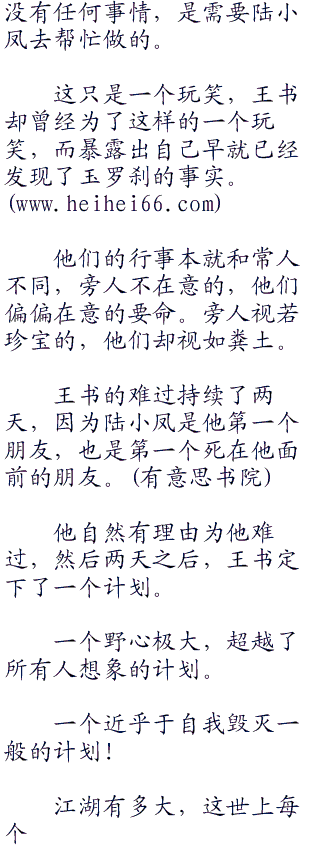 没有任何事情，是需要陆小
凤去帮忙做的。
这只是一个玩笑，王书
却曾经为了这样的一个玩
笑，而暴露出自己早就已经
发现了玉罗刹的事实。
(www.heihei66.com)
他们的行事本就和常人
不同，旁人不在意的，他们
偏偏在意的要命。旁人视若
珍宝的，他们却视如粪土。
王书的难过持续了两
天，因为陆小凤是他第一个
朋友，也是第一个死在他面
前的朋友。(有意思书院)
他自然有理由为他难
过，然后两天之后，王书定
下了一个计划。
一个野心极大，超越了
所有人想象的计划。
一个近乎于自我毁灭一
般的计划！
江湖有多大，这世上每
个